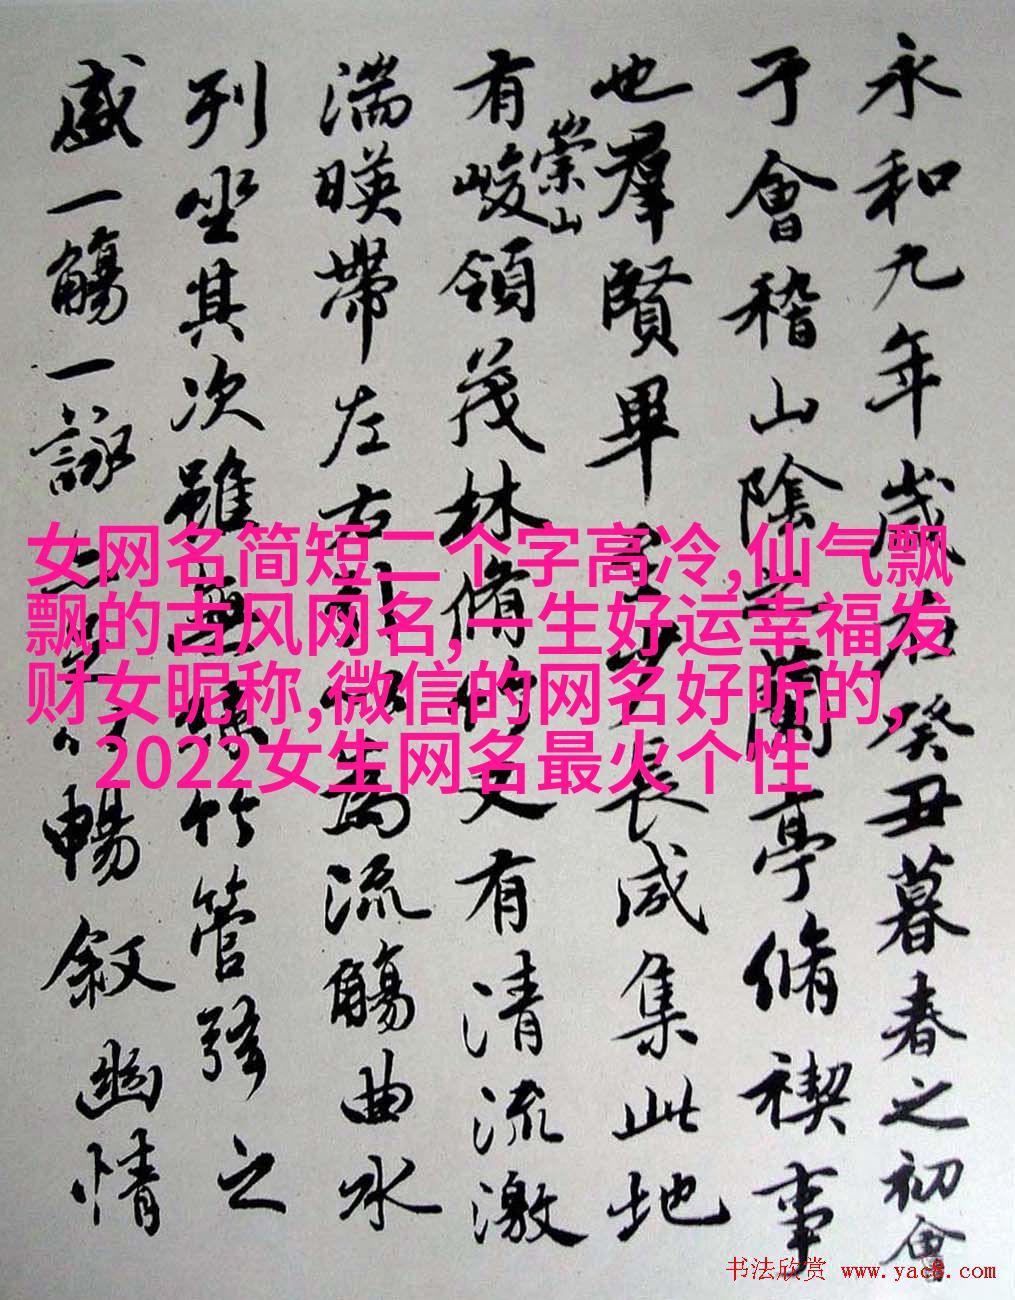 永和九年歲在癸丑暮春之初會
于會稽山陰之蘭亭脩禊事
也羣賢畢至少長咸集此地
有崇山峻領茂林脩竹又有清流激
湍暎帶左右引以為流觴曲水
列坐其次雖無絲竹管弦之
盛一觴一詠亦足以暢敘幽情
女网名简短二个字高冷,仙气飘
飘的古风网名,一生好运幸福发
财女昵称,微信的网名好听的,
2022女生网名最火个性
书法欣赏 www.yac8.com